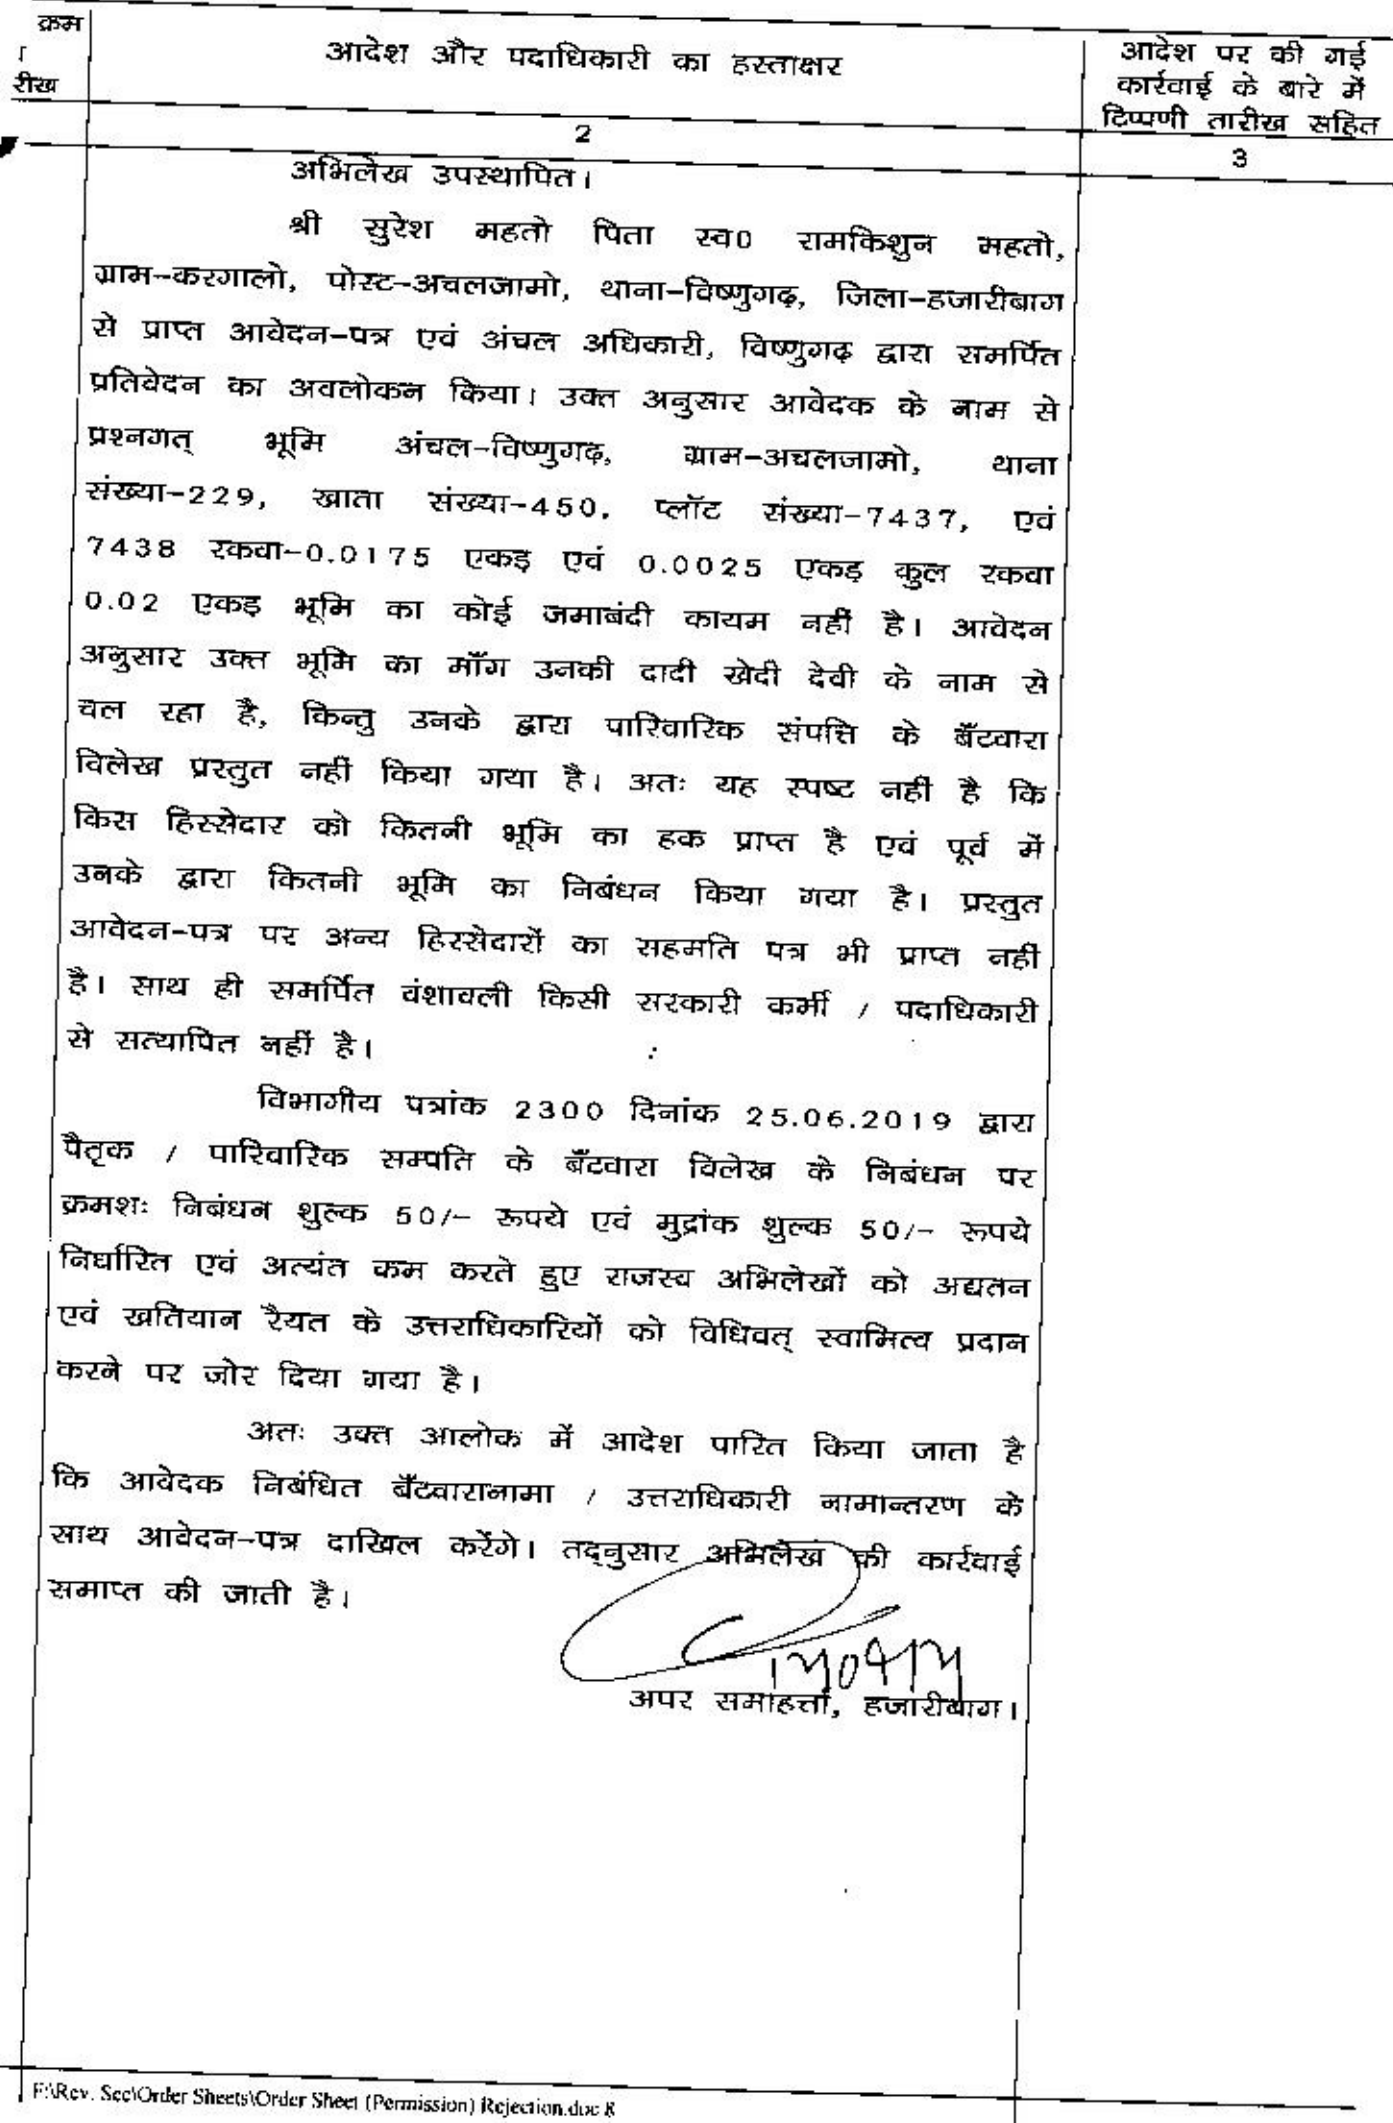 क्रम
रीख
आदेश और पदाधिकारी का हस्ताक्षर
आदेश पर की गई
कार्रवाई के बारे में
टिप्पणी तारीख सहित
2
3
अभिलेख उपस्थापित।
श्री सुरेश महतो पिता स्व0 रामकिशुन महतो,
ग्राम-करगालो, पोस्ट-अचलजामो, थाना-विष्णुगढ़, जिला-हजारीबाग
से प्राप्त आवेदन-पत्र एवं अंचल अधिकारी, विष्णुगढ़ द्वारा समर्पित
प्रतिवेदन का अवलोकन किया। उक्त अनुसार आवेदक के नाम से
प्रश्नगत् भूमि अंचल-विष्णुगढ़, ग्राम-अचलजामो, थाना
संख्या-229, खाता संख्या-450, प्लॉट संख्या-7437, एवं
7438 रकवा-0.0175 एकड़ एवं 0.0025 एकड़ कुल रकवा
0.02 एकड़ भूमि का कोई जमाबंदी कायम नहीं है। आवेदन
अनुसार उक्त भूमि का माँग उनकी दादी खेदी देवी के नाम से
चल रहा है, किन्तु उनके द्वारा पारिवारिक संपत्ति के बँटवारा
विलेख प्रस्तुत नहीं किया गया है। अतः यह स्पष्ट नहीं है कि
किस हिस्सेदार को कितनी भूमि का हक प्राप्त है एवं पूर्व में
उनके द्वारा कितनी भूमि का निबंधन किया गया है। प्रस्तुत
आवेदन-पत्र पर अन्य हिस्सेदारों का सहमति पत्र भी प्राप्त नहीं
है। साथ ही समर्पित वंशावली किसी सरकारी कर्मी / पदाधिकारी
से सत्यापित नहीं है।
विभागीय पत्रांक 2300 दिनांक 25.06.2019 द्वारा
पैतृक / पारिवारिक सम्पति के बँटवारा विलेख के निबंधन पर
क्रमशः निबंधन शुल्क 50/- रूपये एवं मुद्रांक शुल्क 50/- रूपये
निर्धारित एवं अत्यंत कम करते हुए राजस्व अभिलेखों को अद्यतन
एवं खतियान रैयत के उत्तराधिकारियों को विधिवत् स्वामित्व प्रदान
करने पर जोर दिया गया है।
अतः उक्त आलोक में आदेश पारित किया जाता है
कि आवेदक निबंधित बँटवारानामा / उत्तराधिकारी नामान्तरण के
साथ आवेदन-पत्र दाखिल करेंगे। तद्नुसार अभिलेख की कार्रवाई
समाप्त की जाती है।
अपर समाहर्त्ता, हजारीबाग।
F:\Rev. Sec\Order Sheets\Order Sheet (Permission) Rejection.doc 8